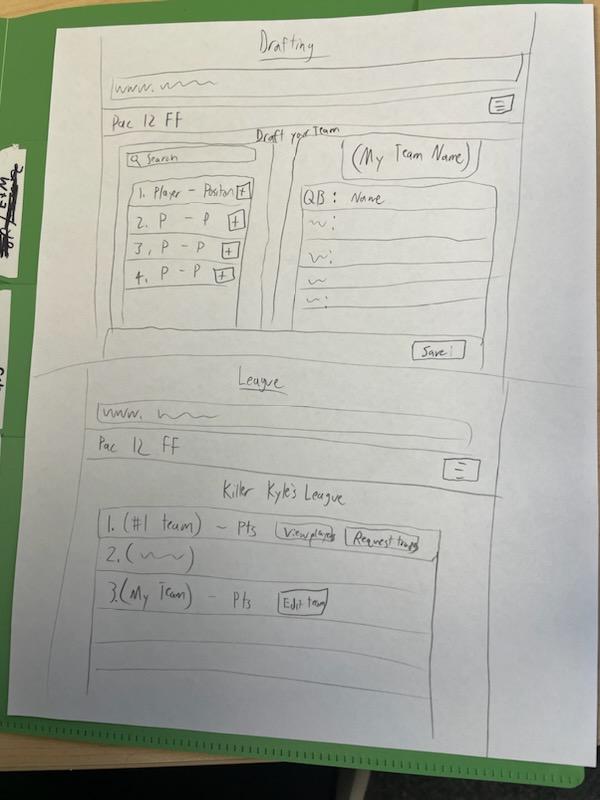 Drafting
www.
Pac 12 FF
Draft your Team
Search
1. Player - Position +
2. P - P +
3, P - P +
4. P - P +
(My Team Name)
QB: Name
Save!
League
www.
Pac 12 FF
Killer Kyle's League
1. (#1 team) - Pts View players Request trade
2. (
3. (My Team) - Pts Edit team